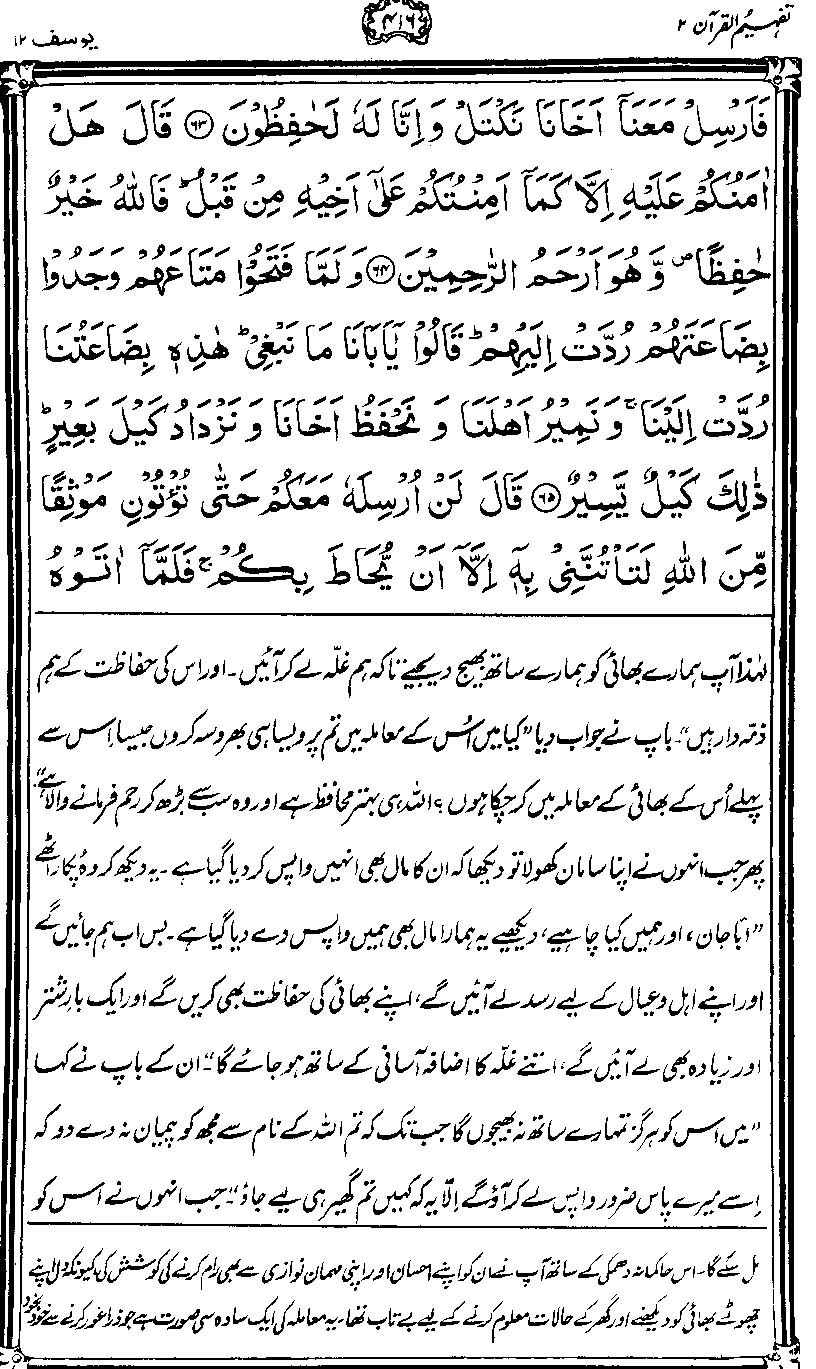 تفہیم القرآن ۲
۴۱۶
یوسف ۱۲
فَاَرۡسِلۡ مَعَنَاۤ اَخَانَا نَكۡتَلۡ وَ اِنَّا لَهٗ لَحٰفِظُوۡنَ ﴿۶۳﴾ قَالَ هَلۡ
اٰمَنُكُمۡ عَلَيۡهِ اِلَّا كَمَاۤ اَمِنۡتُكُمۡ عَلٰٓى اَخِيۡهِ مِنۡ قَبۡلُ ؕ فَاللّٰهُ خَيۡرٌ
حٰفِظًا ۪ وَّ هُوَ اَرۡحَمُ الرّٰحِمِيۡنَ ﴿۶۴﴾ وَ لَمَّا فَتَحُوۡا مَتَاعَهُمۡ وَجَدُوۡا
بِضَاعَتَهُمۡ رُدَّتۡ اِلَيۡهِمۡ ؕ قَالُوۡا يٰۤاَبَانَا مَا نَبۡغِىۡ ؕ هٰذِهٖ بِضَاعَتُنَا
رُدَّتۡ اِلَيۡنَا ۚ وَ نَمِيۡرُ اَهۡلَنَا وَ نَحۡفَظُ اَخَانَا وَ نَزۡدَادُ كَيۡلَ بَعِيۡرٍ ؕ
ذٰلِكَ كَيۡلٌ يَّسِيۡرٌ ﴿۶۵﴾ قَالَ لَنۡ اُرۡسِلَهٗ مَعَكُمۡ حَتّٰى تُؤۡتُوۡنِ مَوۡثِقًا
مِّنَ اللّٰهِ لَتَاۡتُنَّنِىۡ بِهٖۤ اِلَّاۤ اَنۡ يُّحَاطَ بِكُمۡ ۚ فَلَمَّاۤ اٰتَوۡهُ
لہٰذا آپ ہمارے بھائی کو ہمارے ساتھ بھیج دیجیے تاکہ ہم غلّہ لے کر آئیں۔ اور اس کی حفاظت کے ہم
ذمّہ دار ہیں“۔ باپ نے جواب دیا ”کیا میں اُس کے معاملہ میں تم پر ویسا ہی بھروسہ کروں جیسا اِس سے
پہلے اُس کے بھائی کے معاملہ میں کر چکا ہوں؟ اللہ ہی بہتر محافظ ہے اور وہ سب سے بڑھ کر رحم فرمانے والا ہے“۔
پھر جب انہوں نے اپنا سامان کھولا تو دیکھا کہ ان کا مال بھی انہیں واپس کر دیا گیا ہے۔ یہ دیکھ کر وہ پکار اٹھے
”ابّا جان، اور ہمیں کیا چاہیے، دیکھیے یہ ہمارا مال بھی ہمیں واپس دے دیا گیا ہے۔ بس اب ہم جائیں گے
اور اپنے اہل و عیال کے لیے رسد لے آئیں گے، اپنے بھائی کی حفاظت بھی کریں گے اور ایک بارِ شتر
اور زیادہ بھی لے آئیں گے، اتنے غلّہ کا اضافہ آسانی کے ساتھ ہو جائے گا“۔ ان کے باپ نے کہا
”میں اس کو ہرگز تمہارے ساتھ نہ بھیجوں گا جب تک کہ تم اللہ کے نام سے مجھ کو پیمان نہ دے دو کہ
اِسے میرے پاس ضرور واپس لے کر آؤ گے اِلّا یہ کہ کہیں تم گھیر ہی لیے جاؤ“۔ جب انہوں نے اس کو
مل سکے گا۔ اس حاکمانہ دھمکی کے ساتھ آپ نے ان کو اپنے احسان اور اپنی مہمان نوازی سے بھی رام کرنے کی کوشش کی، کیونکہ دل اپنے
چھوٹے بھائی کو دیکھنے اور گھر کے حالات معلوم کرنے کے لیے بے تاب تھا۔ یہ معاملہ کی ایک سادہ سی صورت ہے جو ذرا غور کرنے سے خود بخود